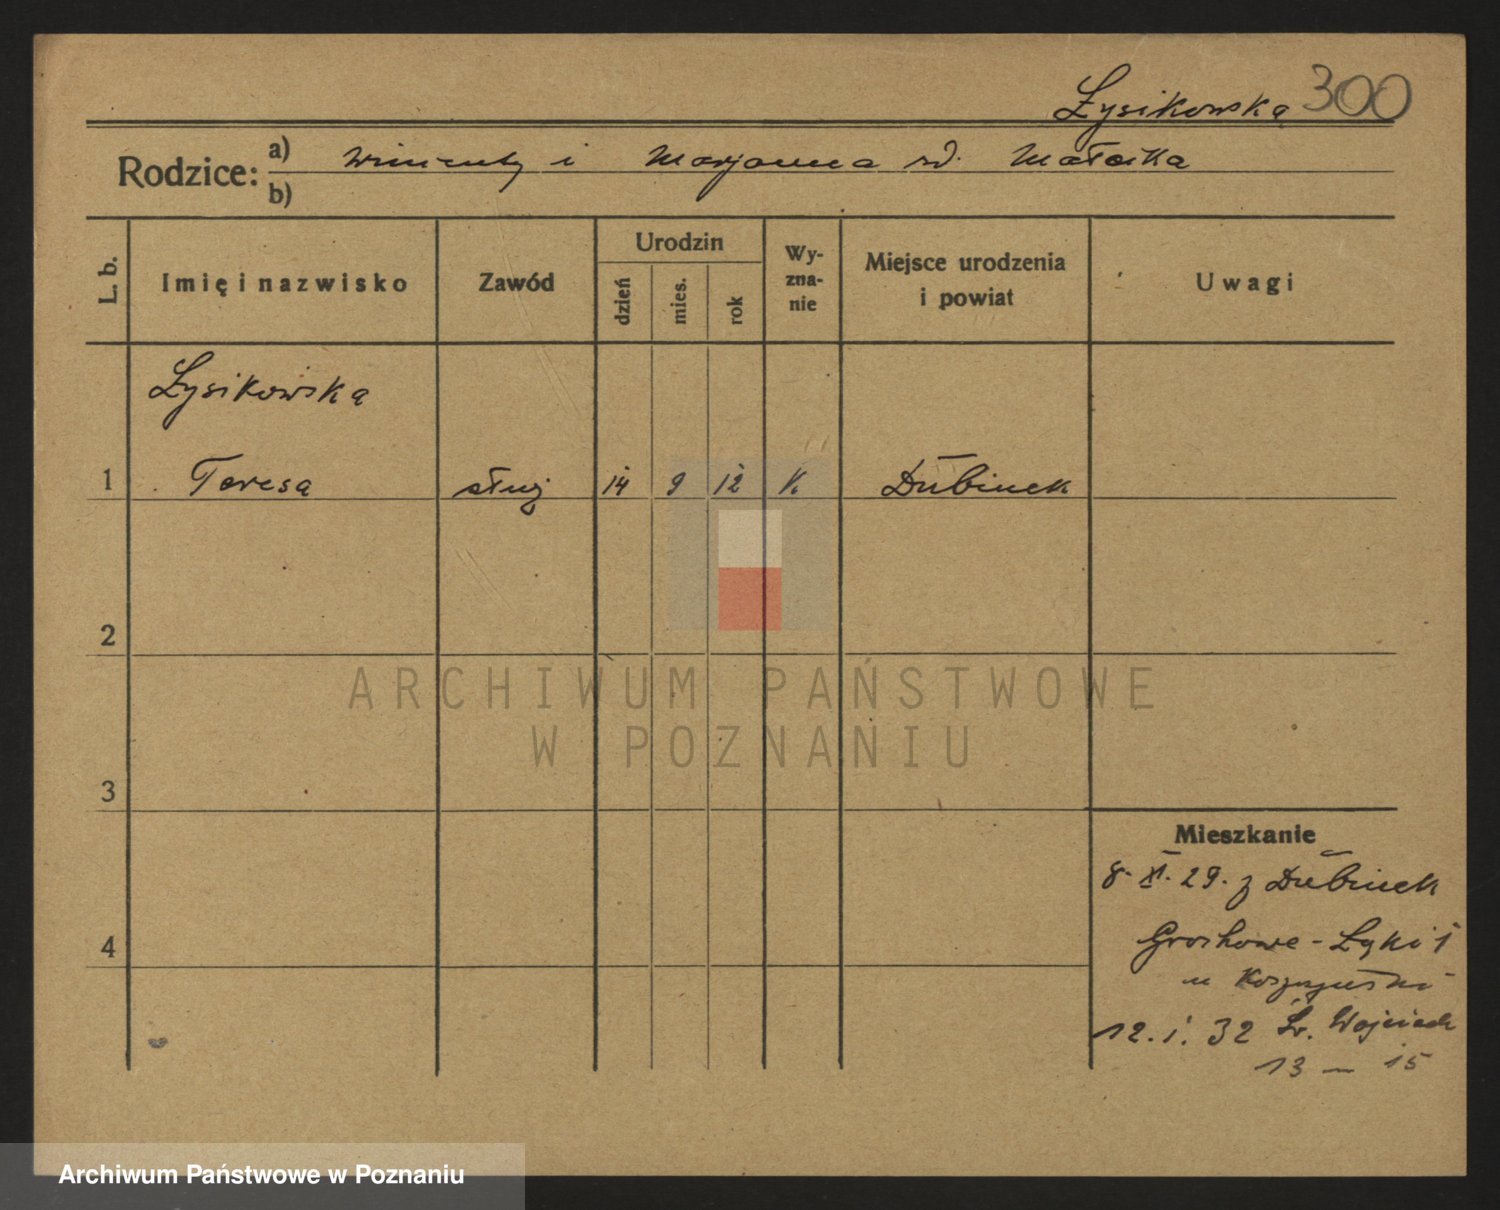 Łysikowska 300
Rodzice: a) Wincenty i Marjanna rd. Matecka
b)
L. b. Imię i nazwisko Zawód Urodzin dzień mies. rok Wy-zna-nie Miejsce urodzenia i powiat Uwagi
Łysikowska
1 Teresa służ 14 9 12 K Dubinek
2
ARCHIWUM PAŃSTWOWE
W POZNANIU
3
Mieszkanie
8. XI. 29. z Dubinek
4 Grochowe - Łąki 1
u
12. I. 32 Św. Wojciech
13 — 15
Archiwum Państwowe w Poznaniu